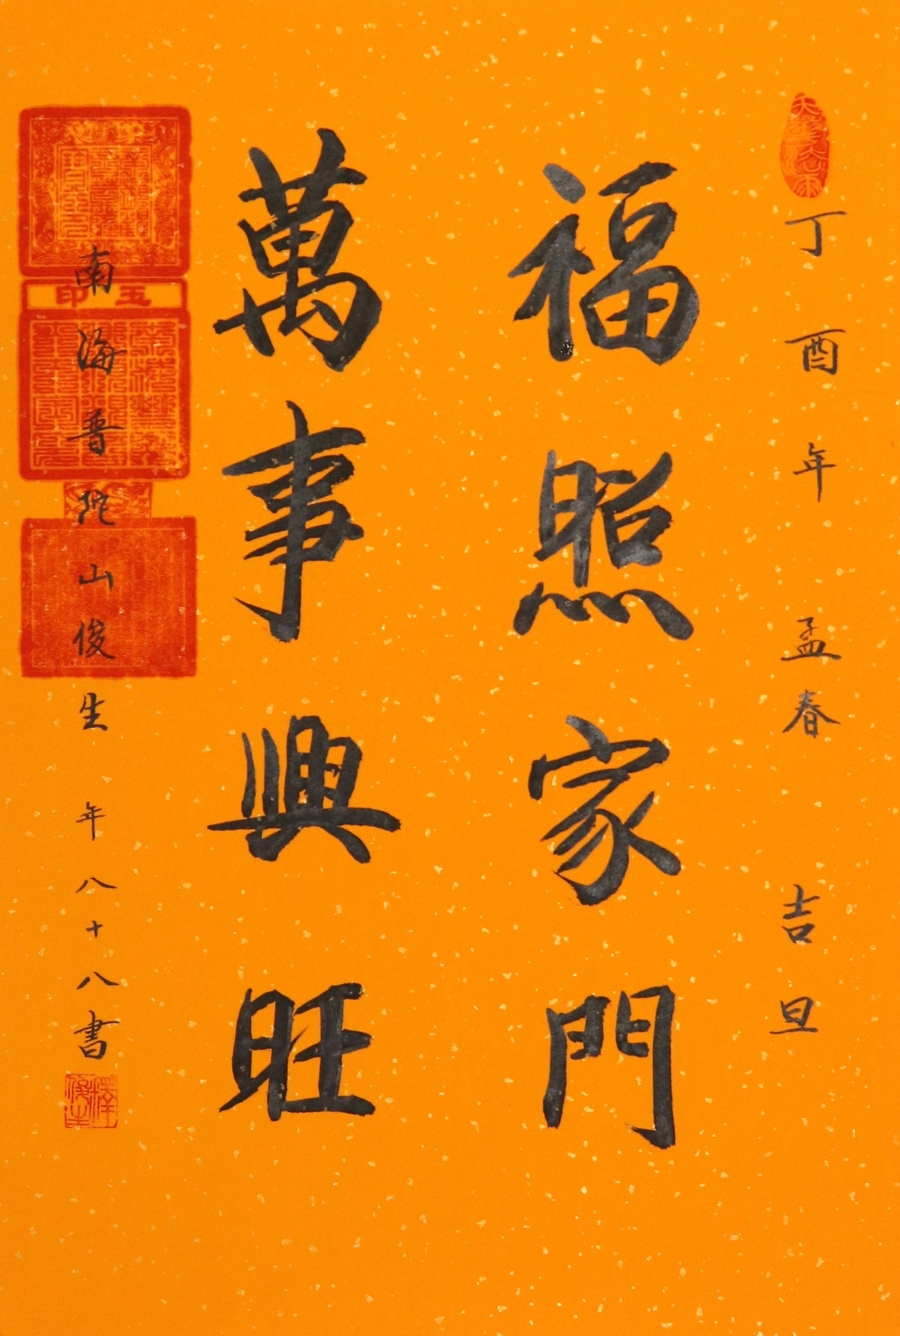 丁酉年孟春吉旦
福照家門
萬事興旺
南海普陀山俊生年八十八書
玉印